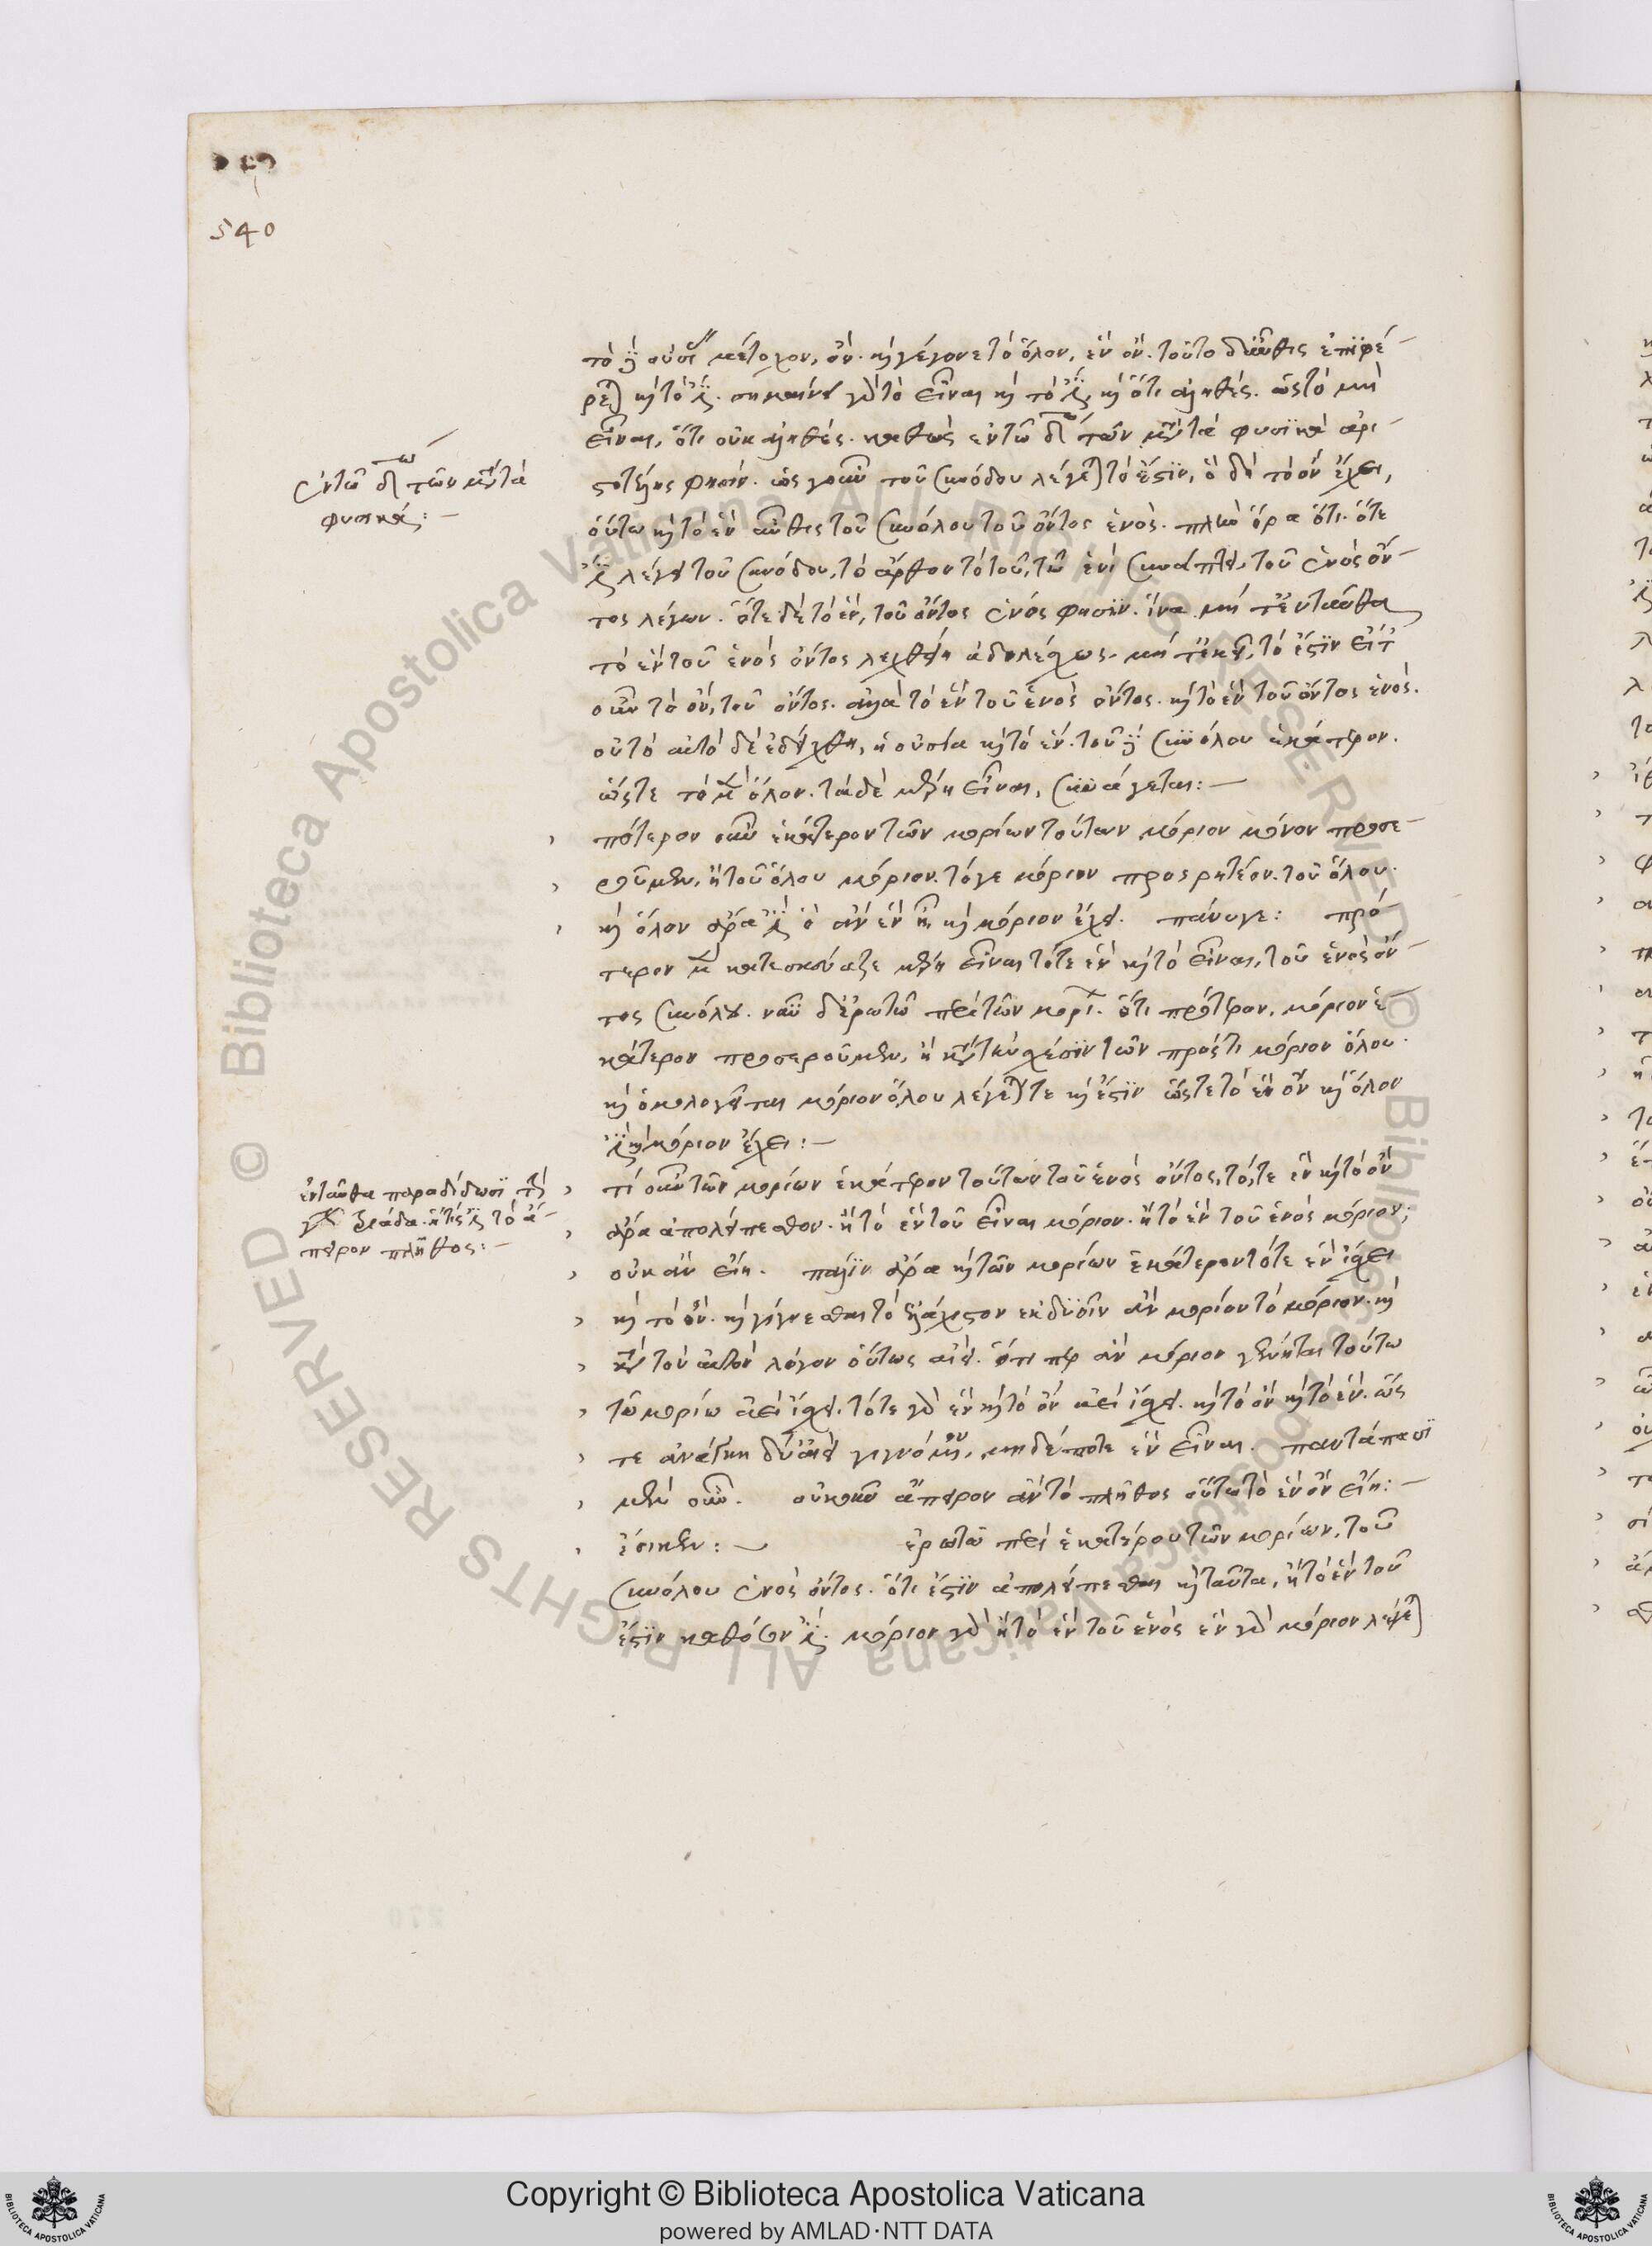 540
τὸ οὐσίας μέτοχον, ὄν. καὶ γέγονε τὸ ὅλον, ἓν ὄν. τοῦτο δ' αὖθις ἐπιφέ-
ρεται καὶ τὸ ἔστι. σημαίνει γὰρ τὸ εἶναι καὶ τὸ ἔστι, καὶ ὅτι ἀληθές. ὡς τὸ μὴ
εἶναι, ὅτι οὐκ ἀληθές. καθὼς ἐν τῷ δ τῶν μετὰ φυσικὰ ἀρι-
στοτέλης φησίν. ὡς γοῦν τοῦ συνόδου λέγεται τὸ ἔστιν, ὃ δὴ τὸ ὂν ἔχει,
οὕτω καὶ τὸ ἓν αὖθις τοῦ συνόλου τοῦ ὄντος ἑνός. πλὴν ὅρα ὅτι. ὅτε
ἔστι λέγει τοῦ συνόδου, τὸ ἄρθρον τὸ τοῦ, τῷ ἑνὶ συνάπτει, τοῦ ἑνὸς ὄν-
τος λέγων. ὅτε δὲ τὸ ἕν, τοῦ ὄντος ἑνός φησιν. ἵνα μὴ
τὸ ἓν τοῦ ἑνὸς ὄντος λεχθείη ἀδολέσχως. μὴ τὸ ἔστιν
οὖν τὸ ὄν, τοῦ ὄντος. ἀλλὰ τὸ ἓν τοῦ ἑνὸς ὄντος. καὶ τὸ ἓν τοῦ ὄντος ἑνός.
οὐ τὸ αὐτὸ δὲ ἐδείχθη, ἡ οὐσία καὶ τὸ ἕν. τοῦ συνόλου ἑκάτερον.
ὥστε τὸ μὲν ὅλον. τὰ δὲ μέρη εἶναι, συνάγεται:—
πότερον οὖν ἑκάτερον τῶν μορίων τούτων μόριον μόνον προσε-
ροῦμεν, ἢ τοῦ ὅλου μόριον. τό γε μόριον προσρητέον. τοῦ ὅλου.
καὶ ὅλον ἄρα ἔστι ὃ ἂν ἓν ᾖ, καὶ μόριον ἔχει. πάνυγε: πρό-
τερον μὲν κατεσκεύαζε μέρη εἶναι τό τε ἓν καὶ τὸ εἶναι, τοῦ ἑνὸς ὄν-
τος συνόλου. νῦν δ' ἐρωτῶν περὶ τῶν μορίων. ὅτι πρότερον, μόριον ἑ-
κάτερον προσεροῦμεν, ἢ κατὰ τὴν σχέσιν τῶν πρός τι μόριον ὅλου.
καὶ ὁμολογεῖται μόριον ὅλου λέγεσθαί τε καὶ ἔστιν ὥστε τὸ ἓν ὂν καὶ ὅλον
ἔστι καὶ μόριον ἔχει:—
τί οὖν τῶν μορίων ἑκάτερον τούτων τοῦ ἑνὸς ὄντος, τό, τε ἓν καὶ τὸ ὂν
ἄρα ἀπολείπεσθον. ἢ τὸ ἓν τοῦ εἶναι μόριον. ἢ τὸ ἓν τοῦ ἑνὸς μόριον;
οὐκ ἂν εἴη. πάλιν ἄρα καὶ τῶν μορίων ἑκάτερον τό τε ἓν ἴσχει
καὶ τὸ ὄν. καὶ γίγνεσθαι τὸ ἐλάχιστον ἐκ δυοῖν ἂν μορίον τὸ μόριον. καὶ
κατὰ τὸν αὐτὸν λόγον οὕτως αἰεί. ὅτι περ ἂν μόριον γένηται τούτω
τὼ μορίω ἀεὶ ἴσχει. τό τε γὰρ ἓν καὶ τὸ ὂν ἀεὶ ἴσχει. καὶ τὸ ὂν καὶ τὸ ἕν. ὥς
τε ἀνάγκη δύ' ἀεὶ γιγνόμενον, μηδέποτε ἓν εἶναι. παντάπασι
μὲν οὖν. οὐκοῦν ἄπειρον ἂν τὸ πλῆθος οὕτω τὸ ἓν ὂν εἴη:—
ἔοικεν:— ἐρωτᾷ περὶ ἑκατέρου τῶν μορίων, τοῦ
συνόλου ἑνὸς ὄντος. ὅτι ἔστιν ἀπολείπεσθαι καὶ ταῦτα, ἢ τὸ ἓν τοῦ
ἔστιν καθόσον ἔστι. μόριον γὰρ ἢ τὸ ἓν τοῦ ἑνὸς ἓν γὰρ μόριον λέγεται
ἐν τῷ δ τῶν μετὰ
φυσικά:—
ἐνταῦθα παραδίδωσι τὴν
δυάδα. ἥτις ἔστι τὸ ἄ-
πειρον πλῆθος:—
© Biblioteca Apostolica Vaticana ALL RIGHTS RESERVED
Copyright © Biblioteca Apostolica Vaticana
powered by AMLAD·NTT DATA
BIBLIOTECA APOSTOLICA VATICANA
BIBLIOTECA APOSTOLICA VATICANA